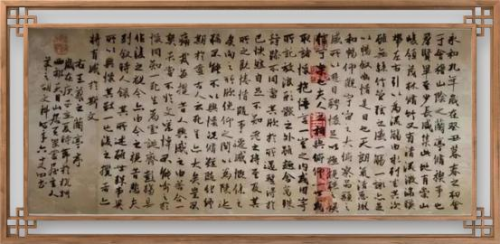 永和九年歲在癸丑暮春之初會
于會稽山陰之蘭亭脩稧事也
群賢畢至少長咸集此地有崇山
峻領茂林脩竹又有清流激湍映
帶左右引以為流觴曲水列坐其次
雖無絲竹管弦之盛一觴一詠亦足
以暢敘幽情是日也天朗氣清惠風
和暢仰觀宇宙之大俯察品類之
盛所以遊目騁懷足以極視聽之娛
信可樂也夫人之相與俯仰一世或
取諸懷抱悟言一室之內或因寄
所託放浪形骸之外雖趣舍萬殊
靜躁不同當其欣於所遇暫得於
己快然自足不知老之將至及其
所之既惓情隨事遷感慨係之
矣向之所欣俛仰之間以為陳迹
猶不能不以之興懷況脩短隨化終
期於盡古人云死生亦大矣豈不
痛哉每攬昔人興感之由若合一
契未嘗不臨文嗟悼不能喻之於
懷固知一死生為虛誕齊彭殤為
妄作後之視今亦由今之視昔悲夫故
列敘時人錄其所述雖世殊事異
所以興懷其致一也後之攬者亦
將有感於斯文
右王羲之蘭亭序